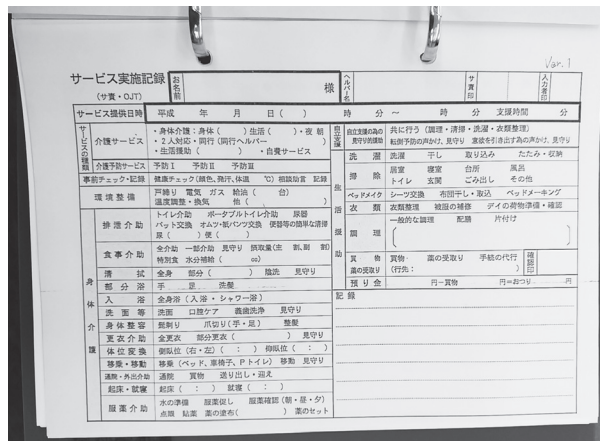 Var.1
サービス実施記録
(サ責・OJT)
お名前
様
ヘルパー名
サ責印
入力者印
サービス提供日時
平成 年 月 日( ) 時 分 ～ 時 分 支援時間 分
サービスの種類
介護サービス
・身体介護:身体( )生活( )・夜 朝
・2人対応・同行(同行ヘルパー )
・生活援助( ) ・自費サービス
介護予防サービス
予防Ⅰ 予防Ⅱ 予防Ⅲ
事前チェック・記録
健康チェック(顔色、発汗、体温 ℃) 相談助言 記録
環境整備
戸締り 電気 ガス 給油( 台)
温度調整・換気 他( )
身体介護
排泄介助
トイレ介助 ポータブルトイレ介助 尿器
パット交換 オムツ・紙パンツ交換 便器等の簡単な清掃
尿( ) 便( )
食事介助
全介助 一部介助 見守り 摂取量(主 割、副 割)
特別食 水分補給( cc)
清拭
全身 部分( ) 陰洗 見守り
部分浴
手 足 洗髪
入浴
全身浴(入浴・シャワー浴)
洗面等
洗面 口腔ケア 義歯洗浄 見守り
身体整容
髭剃り 爪切り(手・足) 整髪
更衣介助
全更衣 部分更衣( ) 見守り
体位変換
側臥位(右・左)( : ) 仰臥位( : )
移乗・移動
移乗(ベッド、車椅子、Pトイレ) 移動 見守り
通院・外出介助
通院 買物 送り出し・迎え
起床・就寝
起床( : ) 就寝( : )
服薬介助
水の準備 服薬促し 服薬確認(朝・昼・夕)
点眼 貼薬 薬の塗布( ) 薬のセット
自立支援
自立支援の為の見守り的援助
共に行う(調理・清掃・洗濯・衣類整理)
転倒予防の声かけ、見守り 意欲を引き出す為の声かけ、見守り
生活援助
洗濯
洗濯 干し 取り込み たたみ・収納
掃除
居室 寝室 台所 風呂
トイレ 玄関 ごみ出し その他
ベッドメイク
シーツ交換 布団干し・取込 ベッドメーキング
衣類
衣類整理 被服の補修 デイの荷物準備・確認
調理
一般的な調理 配膳 片付け
買物
薬の受取り
買物 薬の受取り 手続の代行
(行先: )
確認印
預り金
円－買物 円＝おつり 円
記録